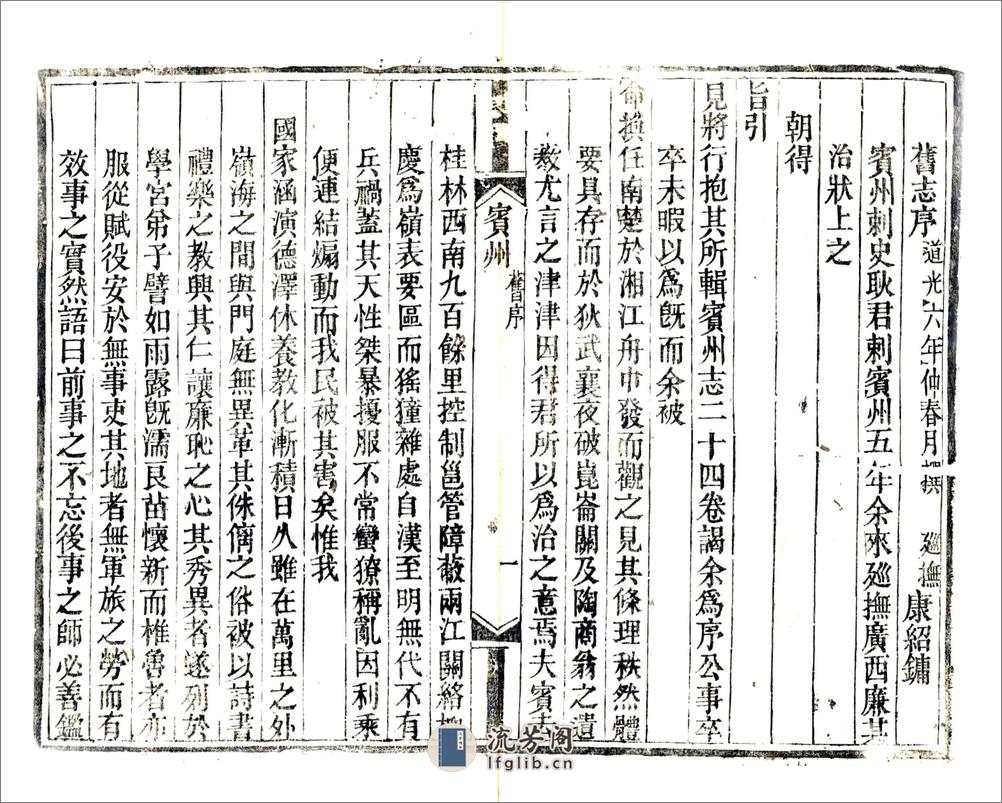 舊志序 道光六年仲春月撰 廵撫康紹鏞
賓州刺史耿君剌賓州五年余來廵撫廣西廉其
治狀上之
朝得
旨引
見將行抱其所輯賓州志二十四卷謁余爲序公事卒
卒未暇以爲旣而余被
命撫任南楚於湘江舟中發而觀之見其條理秩然體
要具存而於狄武襄夜破崑崙關及陶商翁之遺
教尤言之津津因得君所以爲治之意焉夫賓去
賓州 舊序 一
桂林西南九百餘里控制邕管障蔽兩江關絡
慶爲嶺表要區而猺獞雜處自漢至明無代不有
兵禍蓋其天性桀暴擾服不常蠻獠稱亂因利乘
便連結煽動而我民被其害矣惟我
國家涵演德澤休養教化漸積日久雖在萬里之外
嶺海之間與門庭無異革其侏𠌯之俗被以詩書
禮樂之教興其仁讓廉恥之心其秀異者遂列於
學宮弟子譬如雨露旣濡良苗懷新而椎魯者亦
服從賦役安於無事吏其地者無軍旅之勞而有
效事之實然語曰前事之不忘後事之師必善鑑
流芳阁
lfglib.cn